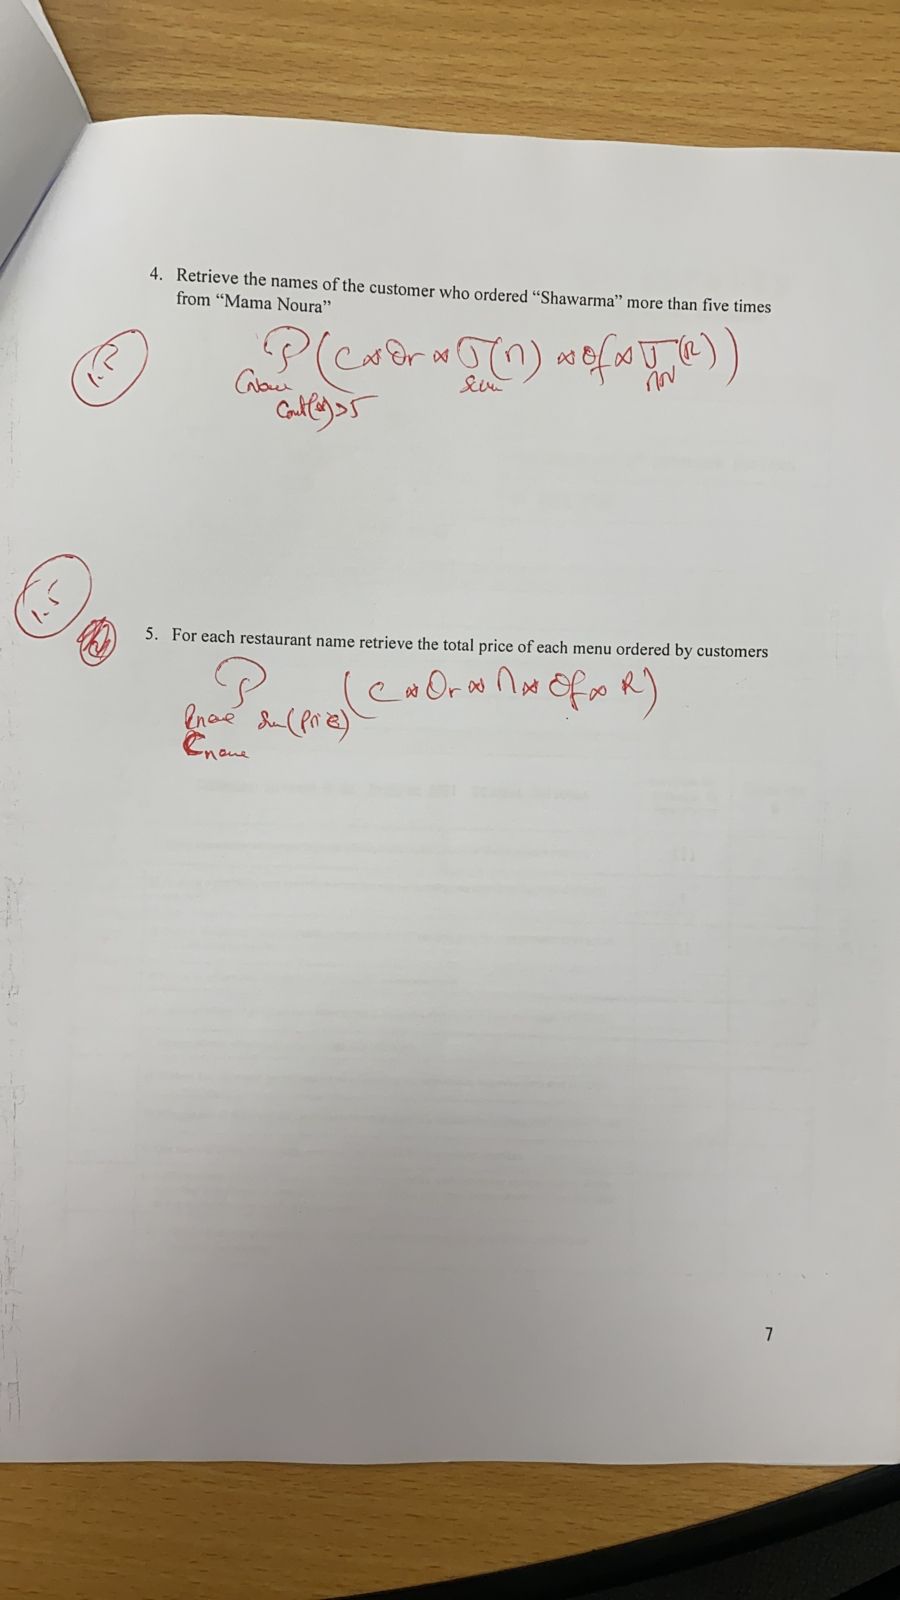 4. Retrieve the names of the customer who ordered “Shawarma” more than five times
from “Mama Noura”
(C ⋈ Or ⋈ σ(M) ⋈ Of ⋈ σ(R))
Cname
Count(*)>5
1.5
5. For each restaurant name retrieve the total price of each menu ordered by customers
(C ⋈ Or ⋈ M ⋈ Of ⋈ R)
Rname Sum(Price)
Cname
7